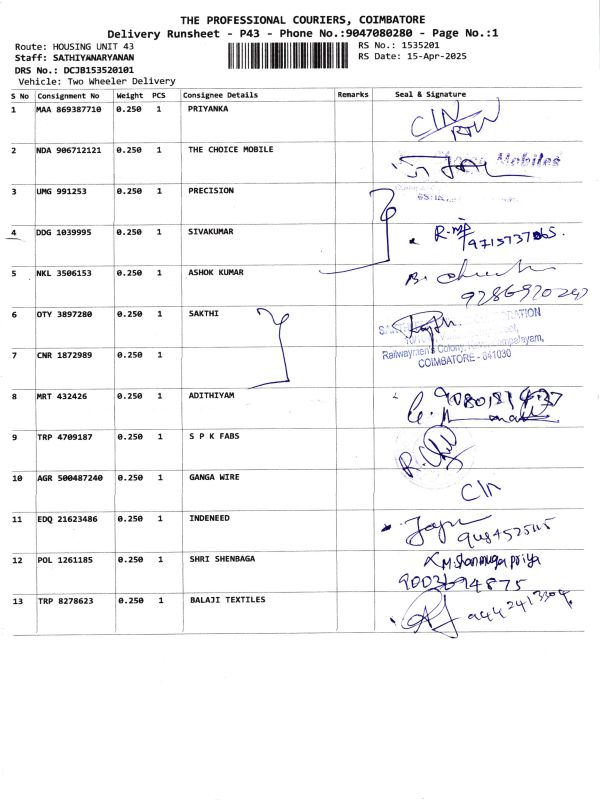 THE PROFESSIONAL COURIERS, COIMBATORE
Delivery Runsheet - P43 - Phone No.:9047080280 - Page No.:1
Route: HOUSING UNIT 43
RS No.: 1535201
Staff: SATHIYANARYANAN
RS Date: 15-Apr-2025
DRS No.: DCJB153520101
Vehicle: Two Wheeler Delivery
S No Consignment No Weight PCS Consignee Details Remarks Seal & Signature
1 MAA 869387710 0.250 1 PRIYANKA CIN
2 NDA 906712121 0.250 1 THE CHOICE MOBILE Mobiles
3 UMG 991253 0.250 1 PRECISION
4 DDG 1039995 0.250 1 SIVAKUMAR
5 NKL 3506153 0.250 1 ASHOK KUMAR
6 OTY 3897280 0.250 1 SAKTHI
7 CNR 1872989 0.250 1
Railwaymen's Colony,
COIMBATORE - 641030
8 MRT 432426 0.250 1 ADITHIYAM
9 TRP 4709187 0.250 1 S P K FABS
10 AGR 500487240 0.250 1 GANGA WIRE
CIN
11 EDQ 21623486 0.250 1 INDENEED
12 POL 1261185 0.250 1 SHRI SHENBAGA M. Shanmuga priya
9003694875
13 TRP 8278623 0.250 1 BALAJI TEXTILES